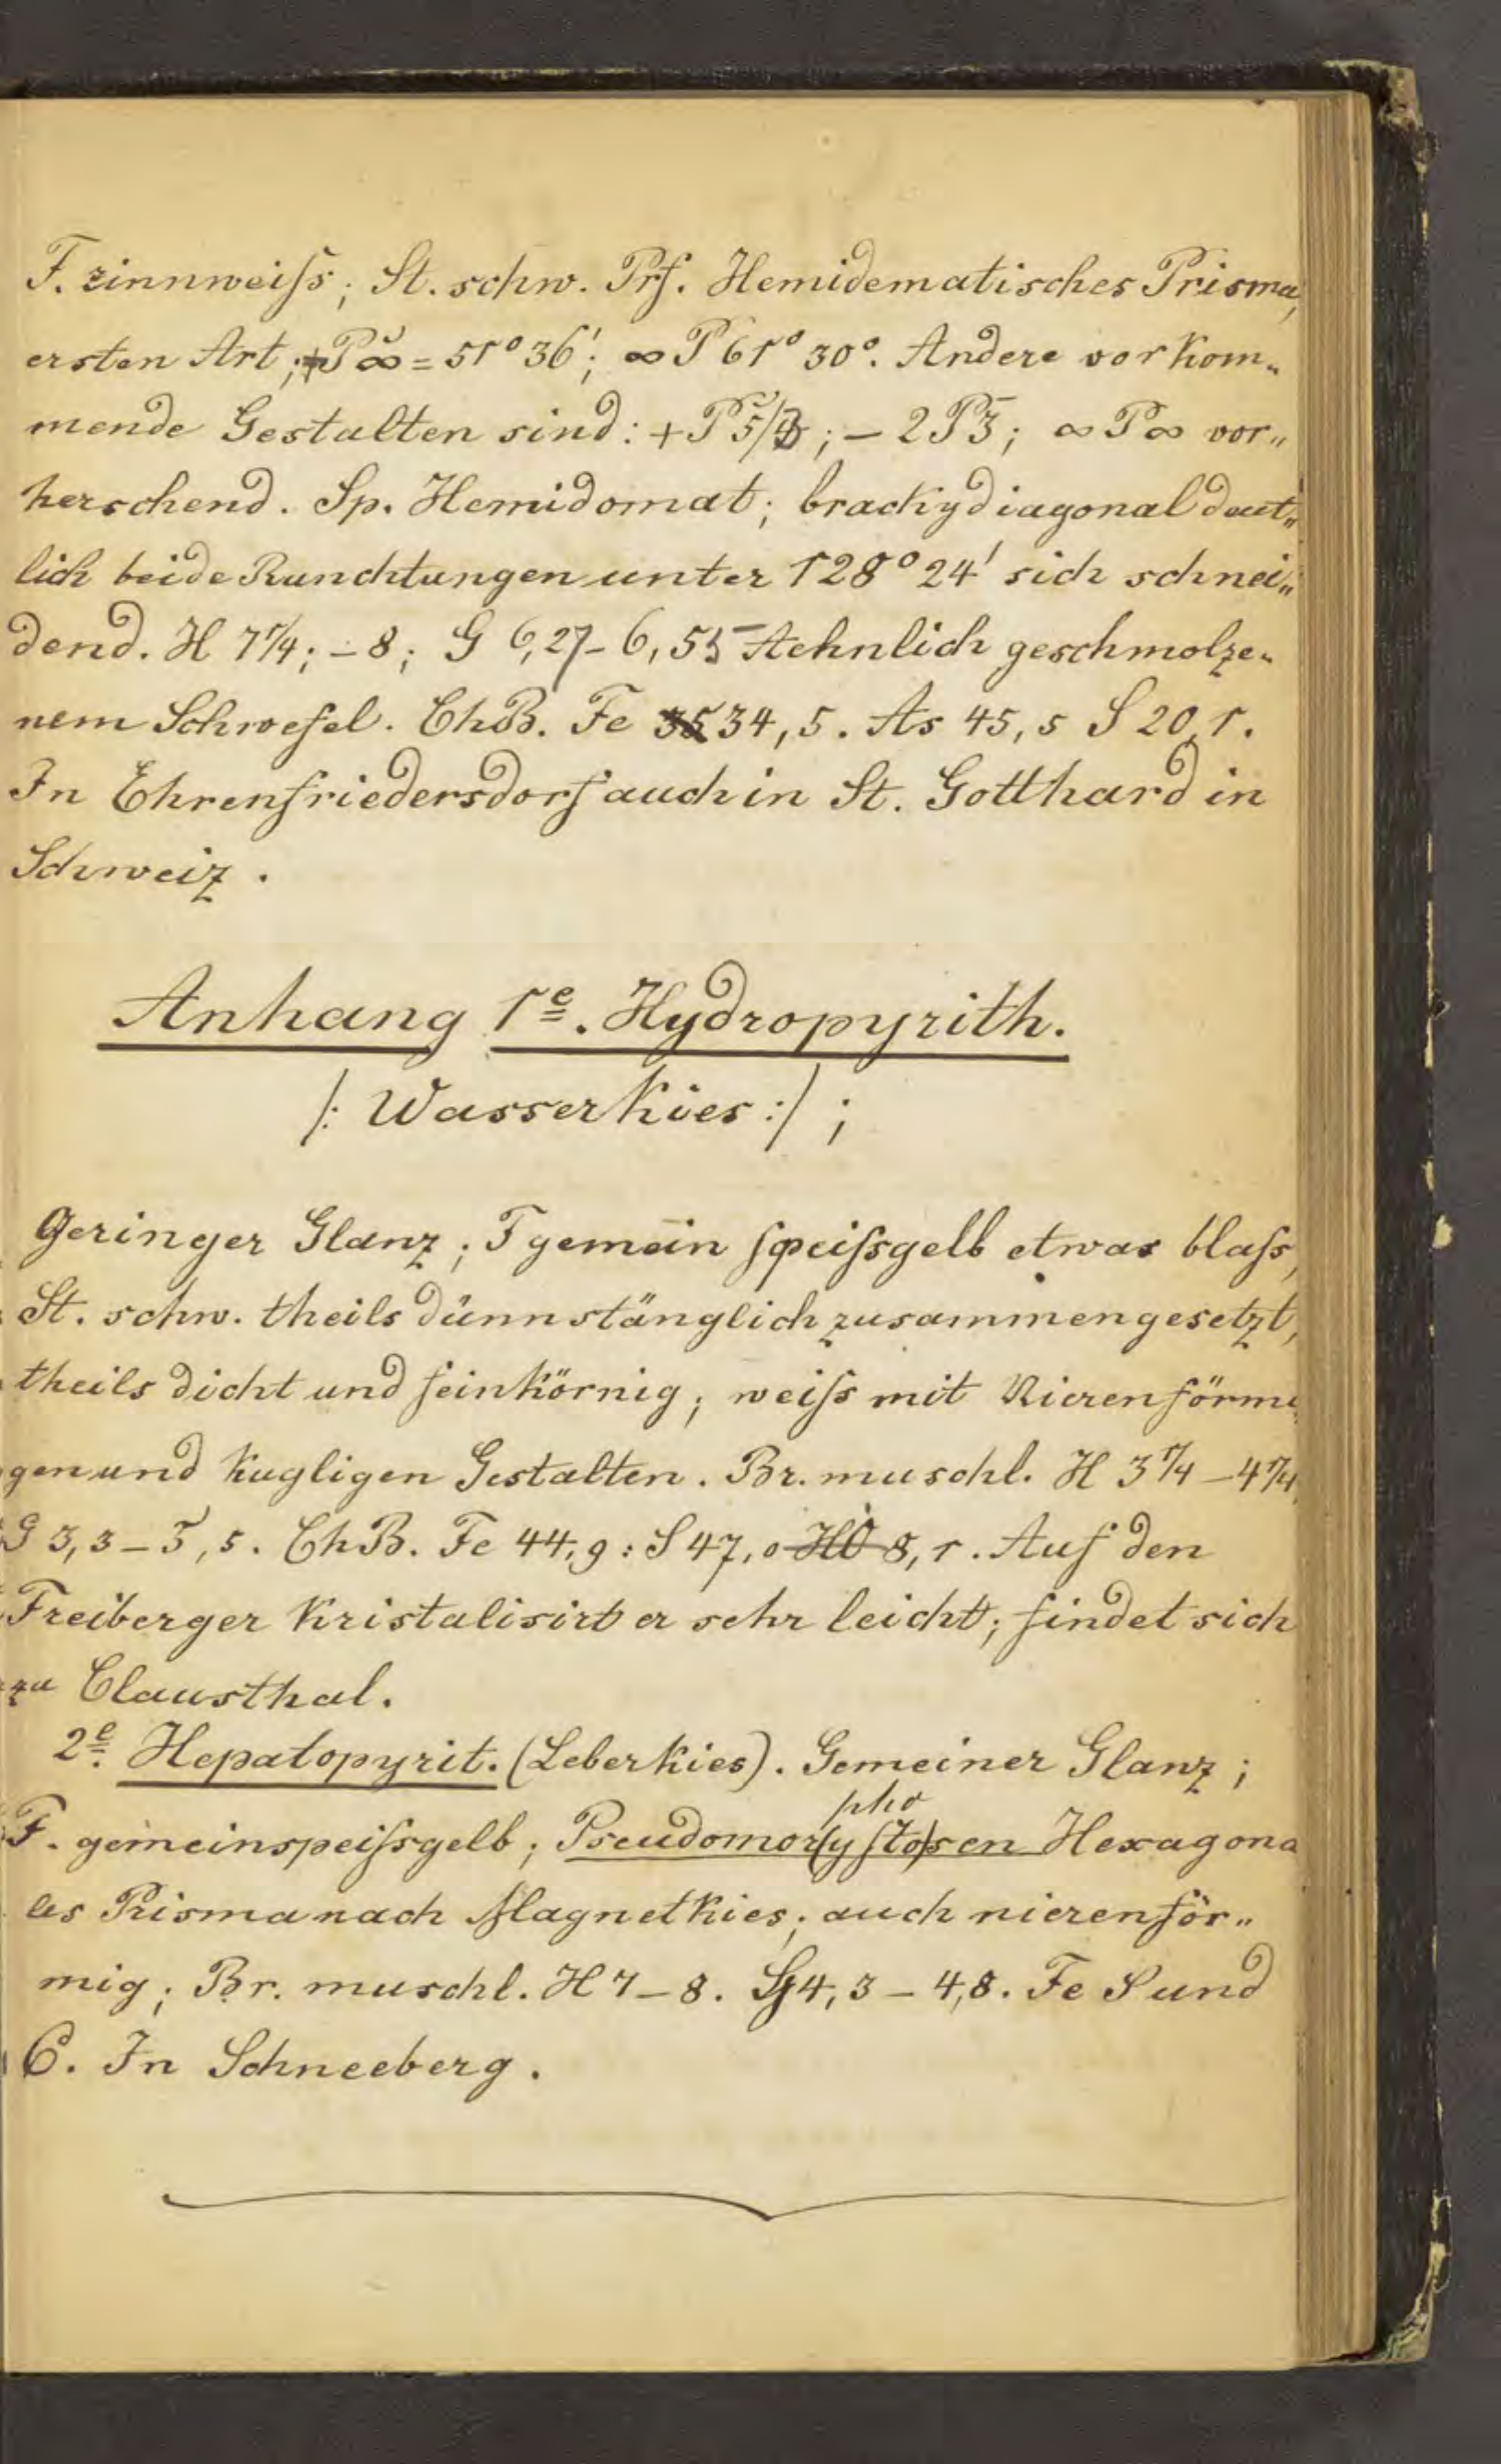 F. zinnweiſs; St. schw. Prf. Hemidematisches Prisma,
ersten Art; +P̆∞ = 51° 36'; ∞P 61° 30°. Andere vorkom„
mende Gestalten sind: + P̆5/4; – 2P̆3; ∞P∞ vor„
herschend. Sp. Hemidomat; brachydiagonal deut„
lich beide Runchtungen unter 128° 24' sich schnei„
dend. H 7 1/4; – 8; G 6,27 – 6,55 Aehnlich geschmolze„
nem Schwefel. ChB. Fe 34,5. As 45,5 S 20,1.
In Ehrenfriedersdorf auch in St. Gotthard in
Schweiz.
Anhang 1e. Hydropyrith.
/: Wasserkies :/ ;
Geringer Glanz; F gemein ſpeiſsgelb etwas blaſs,
St. schw. theils dünnstänglich zusammengesetzt,
theils dicht und feinkörnig; weiſs mit Nierenförmi
gen und kugligen Gestalten. Br. muschl. H 3 1/4 – 4 1/4
G 3,3 – 3,5. ChB. Fe 44,9 : S 47,0 HO 8,1. Auf den
Freiberger kristalisirt er sehr leicht; findet sich
zu Clausthal.
2e. Hepatopyrit. (Leberkies). Gemeiner Glanz;
F. gemeinspeiſsgelb; Pseudomorphosen Hexagona
les Prisma nach Magnetkies; auch nierenför„
mig; Br. muschl. H 7 – 8. G 4,3 – 4,8. Fe S und
C. In Schneeberg.